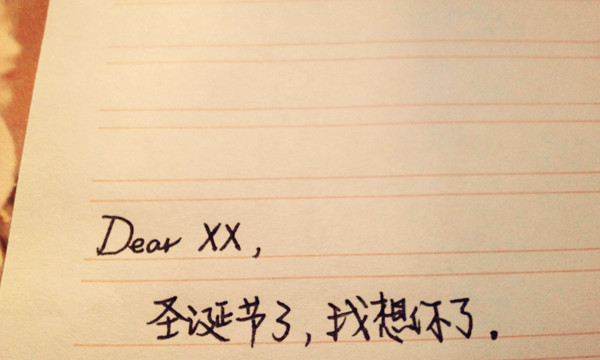 Dear XX,
圣诞节了,我想你了.